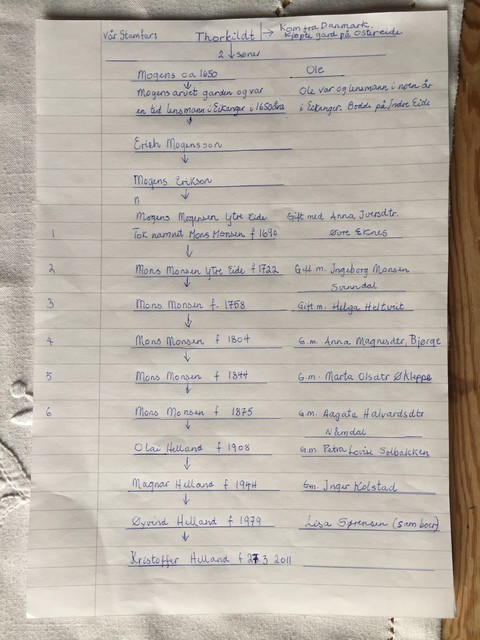 Vår Stamfars Thorkildt → Kom fra Danmark.
Kjøpte gård på Østereide
2 ↓ sønner
Mogens ca 1650 Ole
Mogens arvet garden og var Ole var og lensmann i noen år
en tid lensmann i Eikanger i 1650åra i Eikanger. Bodde på Indre Eide
Erich Mogensson
Mogens Erikson
n
Mogens Mogensen Ytre Eide Gift med Anna Iversdtr.
1 Tok namnet Mons Monsen f 1690 Øvre Eknes
2 Mons Monsen Ytre Eide f 1722 Gift m. Ingeborg Monsen
Svinndal
3 Mons Monsen f. 1758 Gift m. Helga Heltveit
4 Mons Monsen f 1804 G.m. Anna Magnesdtr, Bjørge
5 Mons Monsen f 1844 G.m. Marta Olsdtr Ø Kleppe
6 Mons Monsen f 1875 G.m. Aagate Halvardsdtr
Nåmdal
Olai Helland f 1908 G.m. Petra Lovise Solbakken
Magnar Helland f 1944 Gm. Inger Kolstad
Øyvind Helland f 1979 Lisa Sørensen (samboer)
Kristoffer Helland f 27 3 2011